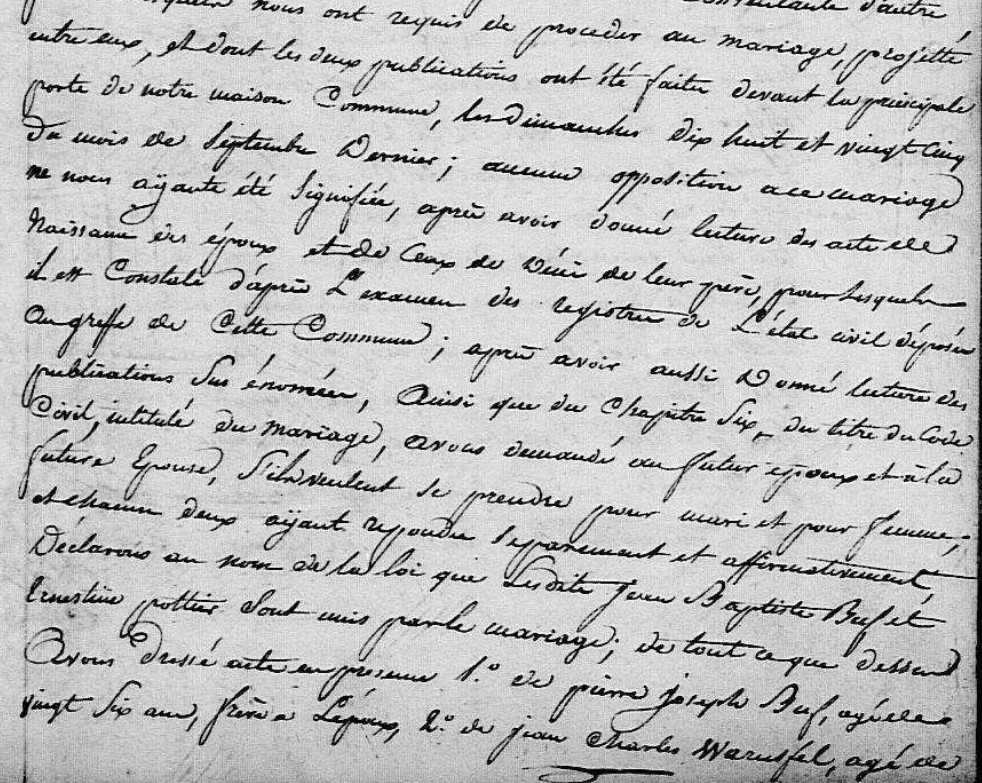 nous ont requis de proceder au mariage, projetté
entre eux, et dont les deux publications ont été faites devant la principale
porte de notre maison Commune, les dimanches dix huit et vingt cinq
du mois de Septembre Dernier; aucune opposition a ce mariage
ne nous aÿante été Signifiée, après avoir donné lecture des acte de
Naissance des époux et de Ceux de Décè de leur père, pour lesquels
il est Constaté d'après L'examen des registres de L'état civil déposés
au greffe de Cette Commune; après avoir aussi Donné lecture des
publications Sus énomées, Ainsi que du Chapitre Six, du titre du Code
Civil, intitulé du mariage, avons demandé au futur époux et à la
future Epouse, S'ils veulent se prendre pour mari et pour femme;
et chacun deux aÿant repondu Separement et affirmativement,
Déclarons au nom de la loi que Lesdits Jean Baptiste Buf et
Ernestine pottier Sont unis par le mariage; de tout ce que dessus
Avons Dressé acte en presence 1.º de pierre Joseph Buf, agé de
vingt Six ans, frère a L'époux, 2.º de jean Charles Warusfel, agé de